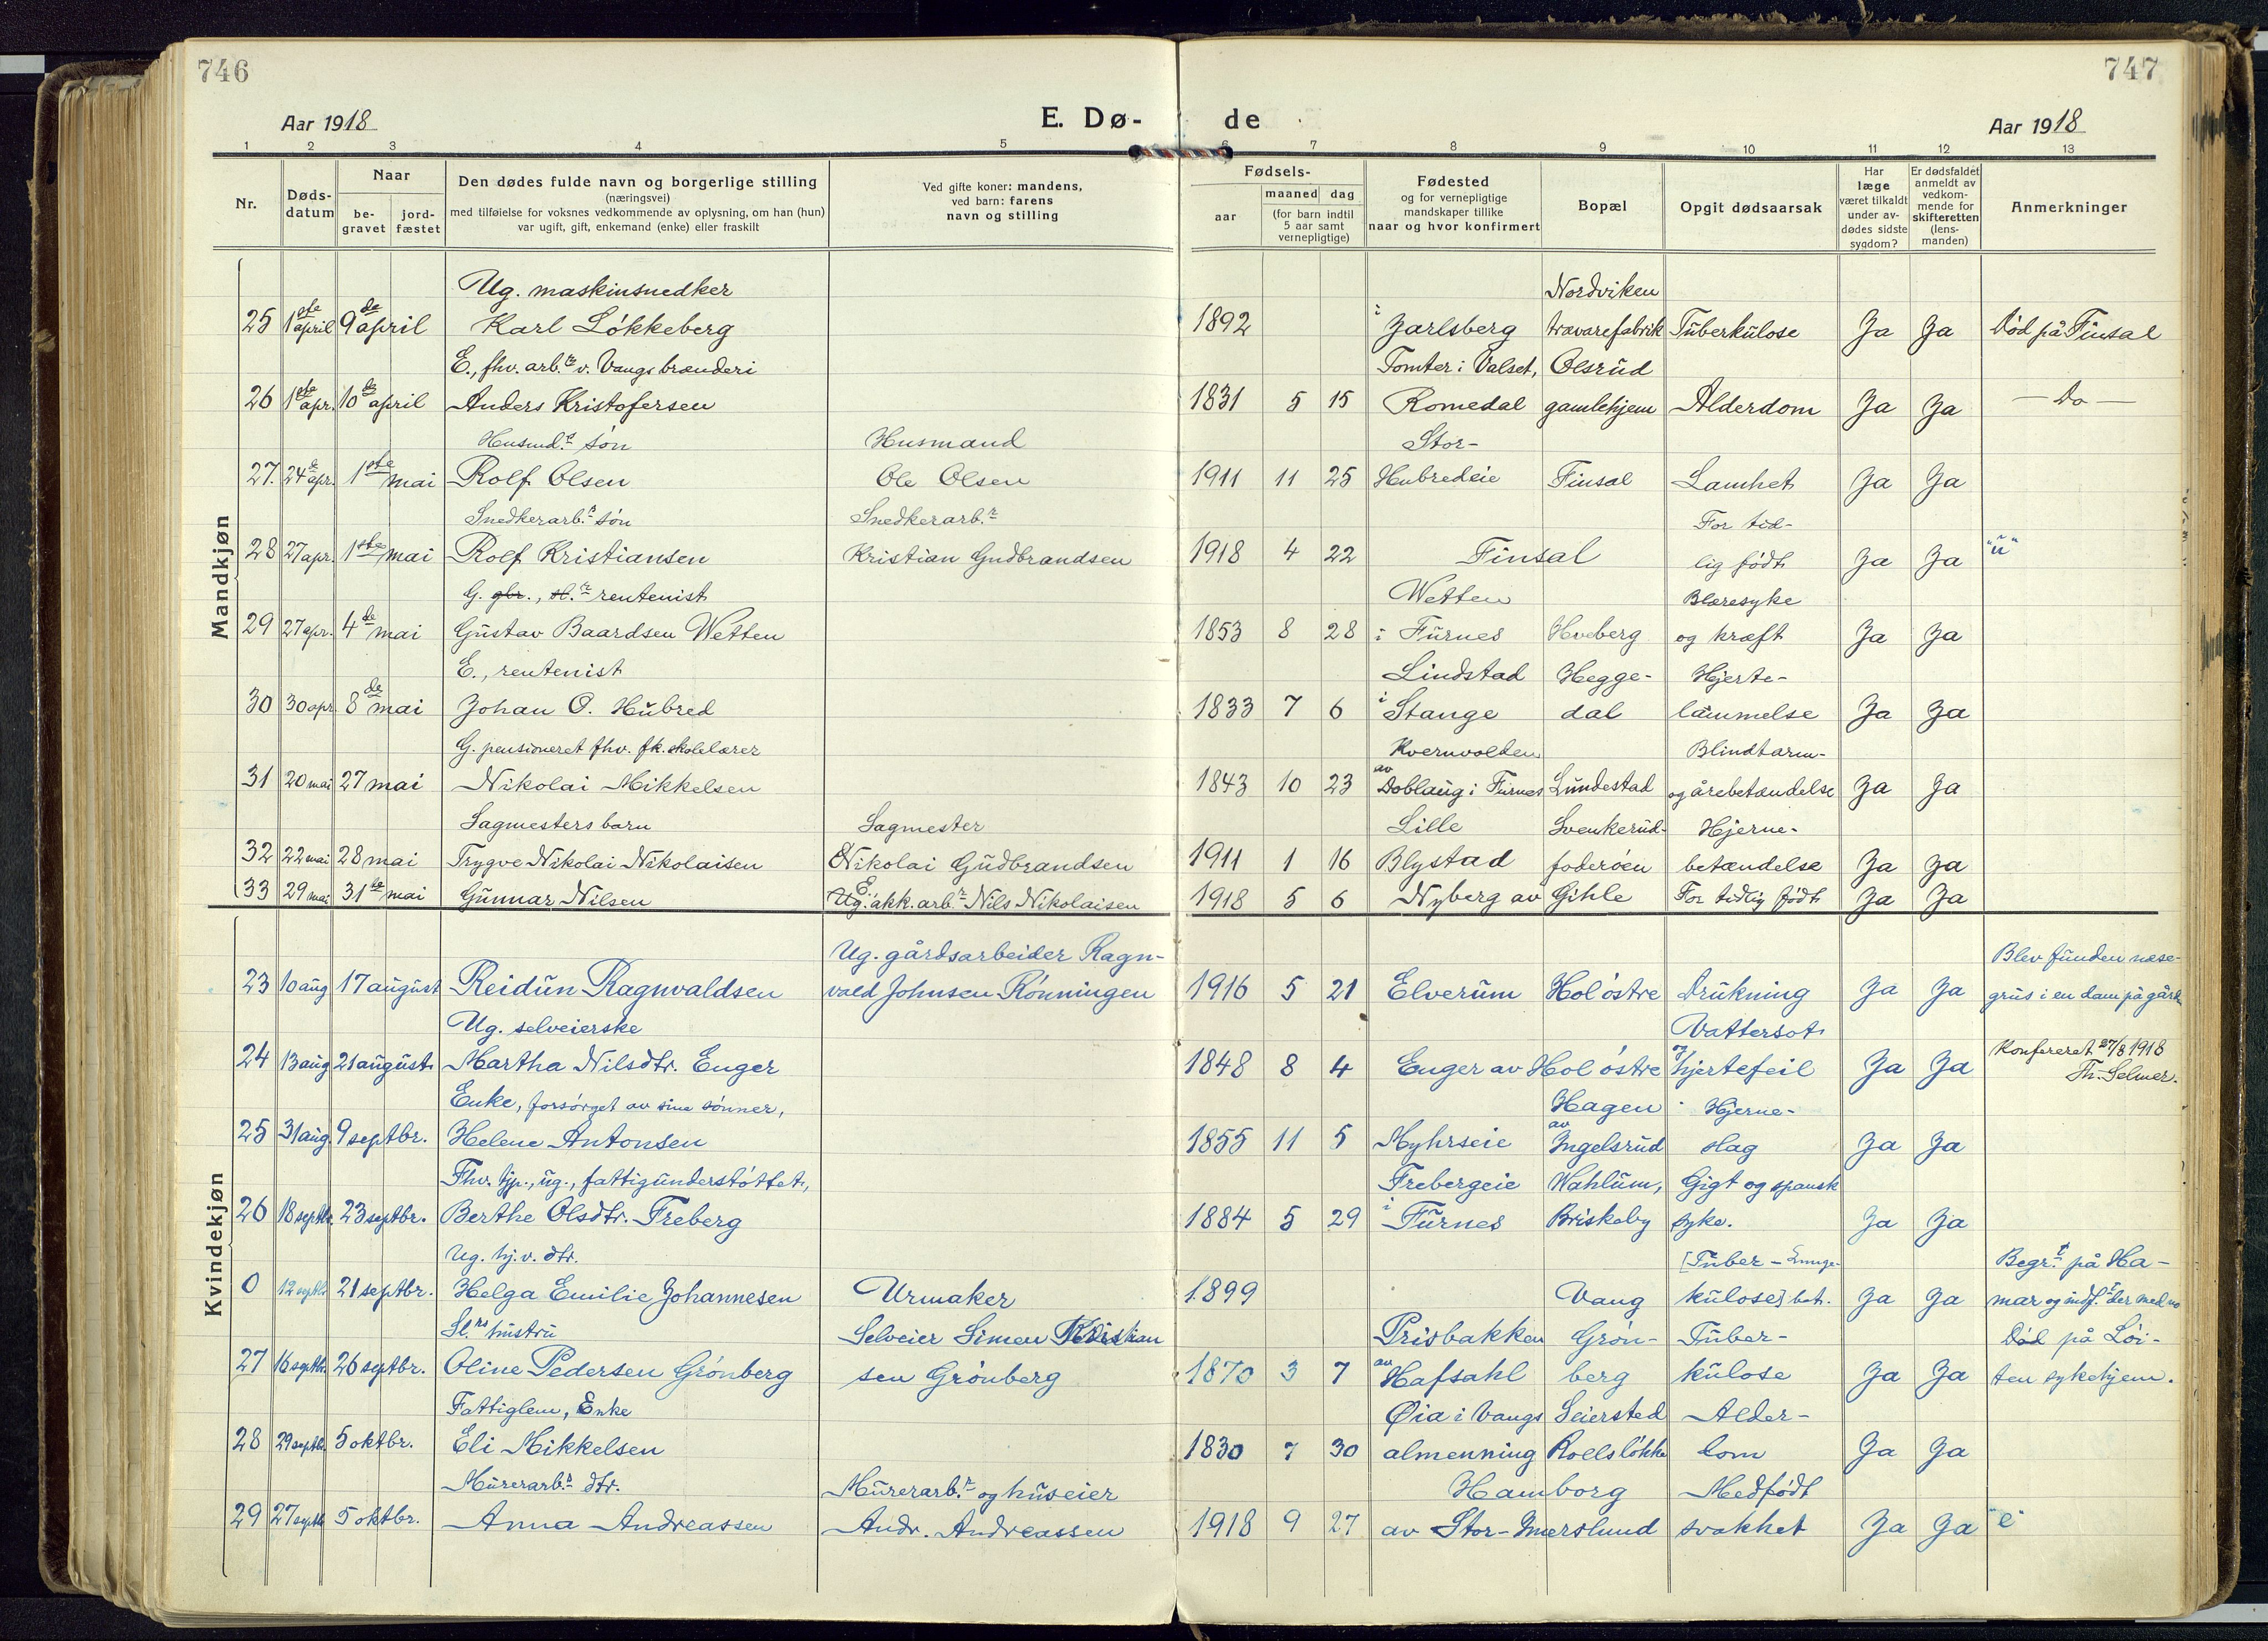 746
747
Aar 1918
E. Dø-
de
Aar 1918
1 2 3 4 5 6 7 8 9 10 11 12 13
Nr.
Døds-
datum
Naar
be-
gravet
jord-
fæstet
Den dødes fulde navn og borgerlige stilling
(næringsvei)
med tilføielse for voksnes vedkommende av oplysning, om han (hun)
var ugift, gift, enkemand (enke) eller fraskilt
Ved gifte koner: mandens,
ved barn: farens
navn og stilling
Fødsels-
aar
maaned dag
(for barn indtil
5 aar samt
vernepligtige)
Fødested
og for vernepligtige
mandskaper tillike
naar og hvor konfirmert
Bopæl
Opgit dødsaarsak
Har
læge
været tilkaldt
under av-
dødes sidste
sygdom?
Er dødsfaldet
anmeldt av
vedkom-
mende for
skifteretten
(lens-
manden)
Anmerkninger
Mandkjøn
Ug. maskinsnedker Nordviken
25 1ste april 9de april Karl Løkkeberg 1892 i Jarlsberg trævarefabrik Tuberkulose Ja Ja Död på Finsal
E., fhv. arb.r v. Vangs brænderi Tomter i Valset, Olsrud
26 1ste apr. 10de april Anders Kristofersen 1831 5 15 Romedal gamlehjem Alderdom Ja Ja — Do —
Husmd.s søn Husmand Stor-
27. 24de apr. 1ste mai Rolf Olsen Ole Olsen 1911 11 25 Hubredeie Finsal Lamhet Ja Ja
Snedkerarb.s søn Snedkerarb.r For tid-
28 27 apr. 1ste mai Rolf Kristiansen Kristian Gudbrandsen 1918 4 22 Finsal lig født Ja Ja "u"
G. gbr., rentenist Wetten Blæresyke
29 27 apr. 4de mai Gustav Baardsen Wetten 1853 8 28 i Furnes Hveberg og kræft Ja Ja
E., rentenist Lindstad Hegge- Hjerte-
30 30 apr. 8de mai Johan O. Hubred 1833 7 6 i Stange dal lammelse Ja Ja
G. pensioneret fhv. fk. skolelærer Kvernvolden Blindtarm-
31 20 mai 27 mai Nikolai Mikkelsen 1843 10 23 av Doblaug i Furnes Lundestad og årebetændelse Ja Ja
Sagmesters barn Sagmester Lille Svenkerud- Hjerne-
32 22 mai 28 mai Trygve Nikolai Nikolaisen Nikolai Gudbrandsen 1911 1 16 Blystad foderøen betændelse Ja Ja
33 29 mai 31te mai Gunnar Nilsen akk. arb.r Nils Nikolaisen 1918 5 6 Nyberg av Gihle For tidlig født Ja Ja
Kvindekjøn
Ug. gårdsarbeider Ragn- Blev funden næse-
23 10 aug 17 august Reidun Ragnvaldsen vald Johnsen Rønningen 1916 5 21 Elverum Hol østre Drukning Ja Ja grus i en dam på gården
Ug. selveierske Vattersot
24 13 aug 21 august Martha Nilsdtr. Enger 1848 8 4 Enger av Hol østre og hjertefeil Ja Ja Konfereret 27/8 1918
Th. Selmer.
Enke, forsørget av sine sønner, Hagen Hjerne-
25 31 aug. 9 septbr. Helene Antonsen 1855 11 5 Myhrseie av Ingelsrud slag Ja Ja
Fhv. tjp., ug., fattigunderstøttet, Frebergeie Wahlum, Gigt og spansk
26 18 septbr. 23 septbr. Berthe Olsdtr. Freberg 1884 5 29 i Furnes Briskeby syke. Ja Ja
Ug. hj.v. dtr. [Tuber- Lunge- Begr.t på Ha-
0 12 septbr. 21 septbr. Helga Emilie Johannesen Urmaker 1899 Vang kulose] bet. Ja Ja mar og indf.t der med no
Sl.rs hustru Selveier Simen Kristian Prisbakken Grøn- Tuber- Död på Løi-
27 16 septbr. 26 septbr. Oline Pedersen Grønberg sen Grønberg 1870 3 7 av Hafsahl berg kulose Ja Ja ten sykehjem.
Fattiglem, Enke Øia i Vangs Seiersted Alder-
28 29 septbr. 5 oktbr. Eli Mikkelsen 1830 7 30 almenning Roellsløkke dom Ja Ja
Murerarb.s dtr. Murerarb.r og huseier Hamborg Medfødt
29 27 septbr 5 oktbr. Anna Andreassen Andr. Andreassen 1918 9 27 av Stor-Imerslund svakhet Ja Ja "e"